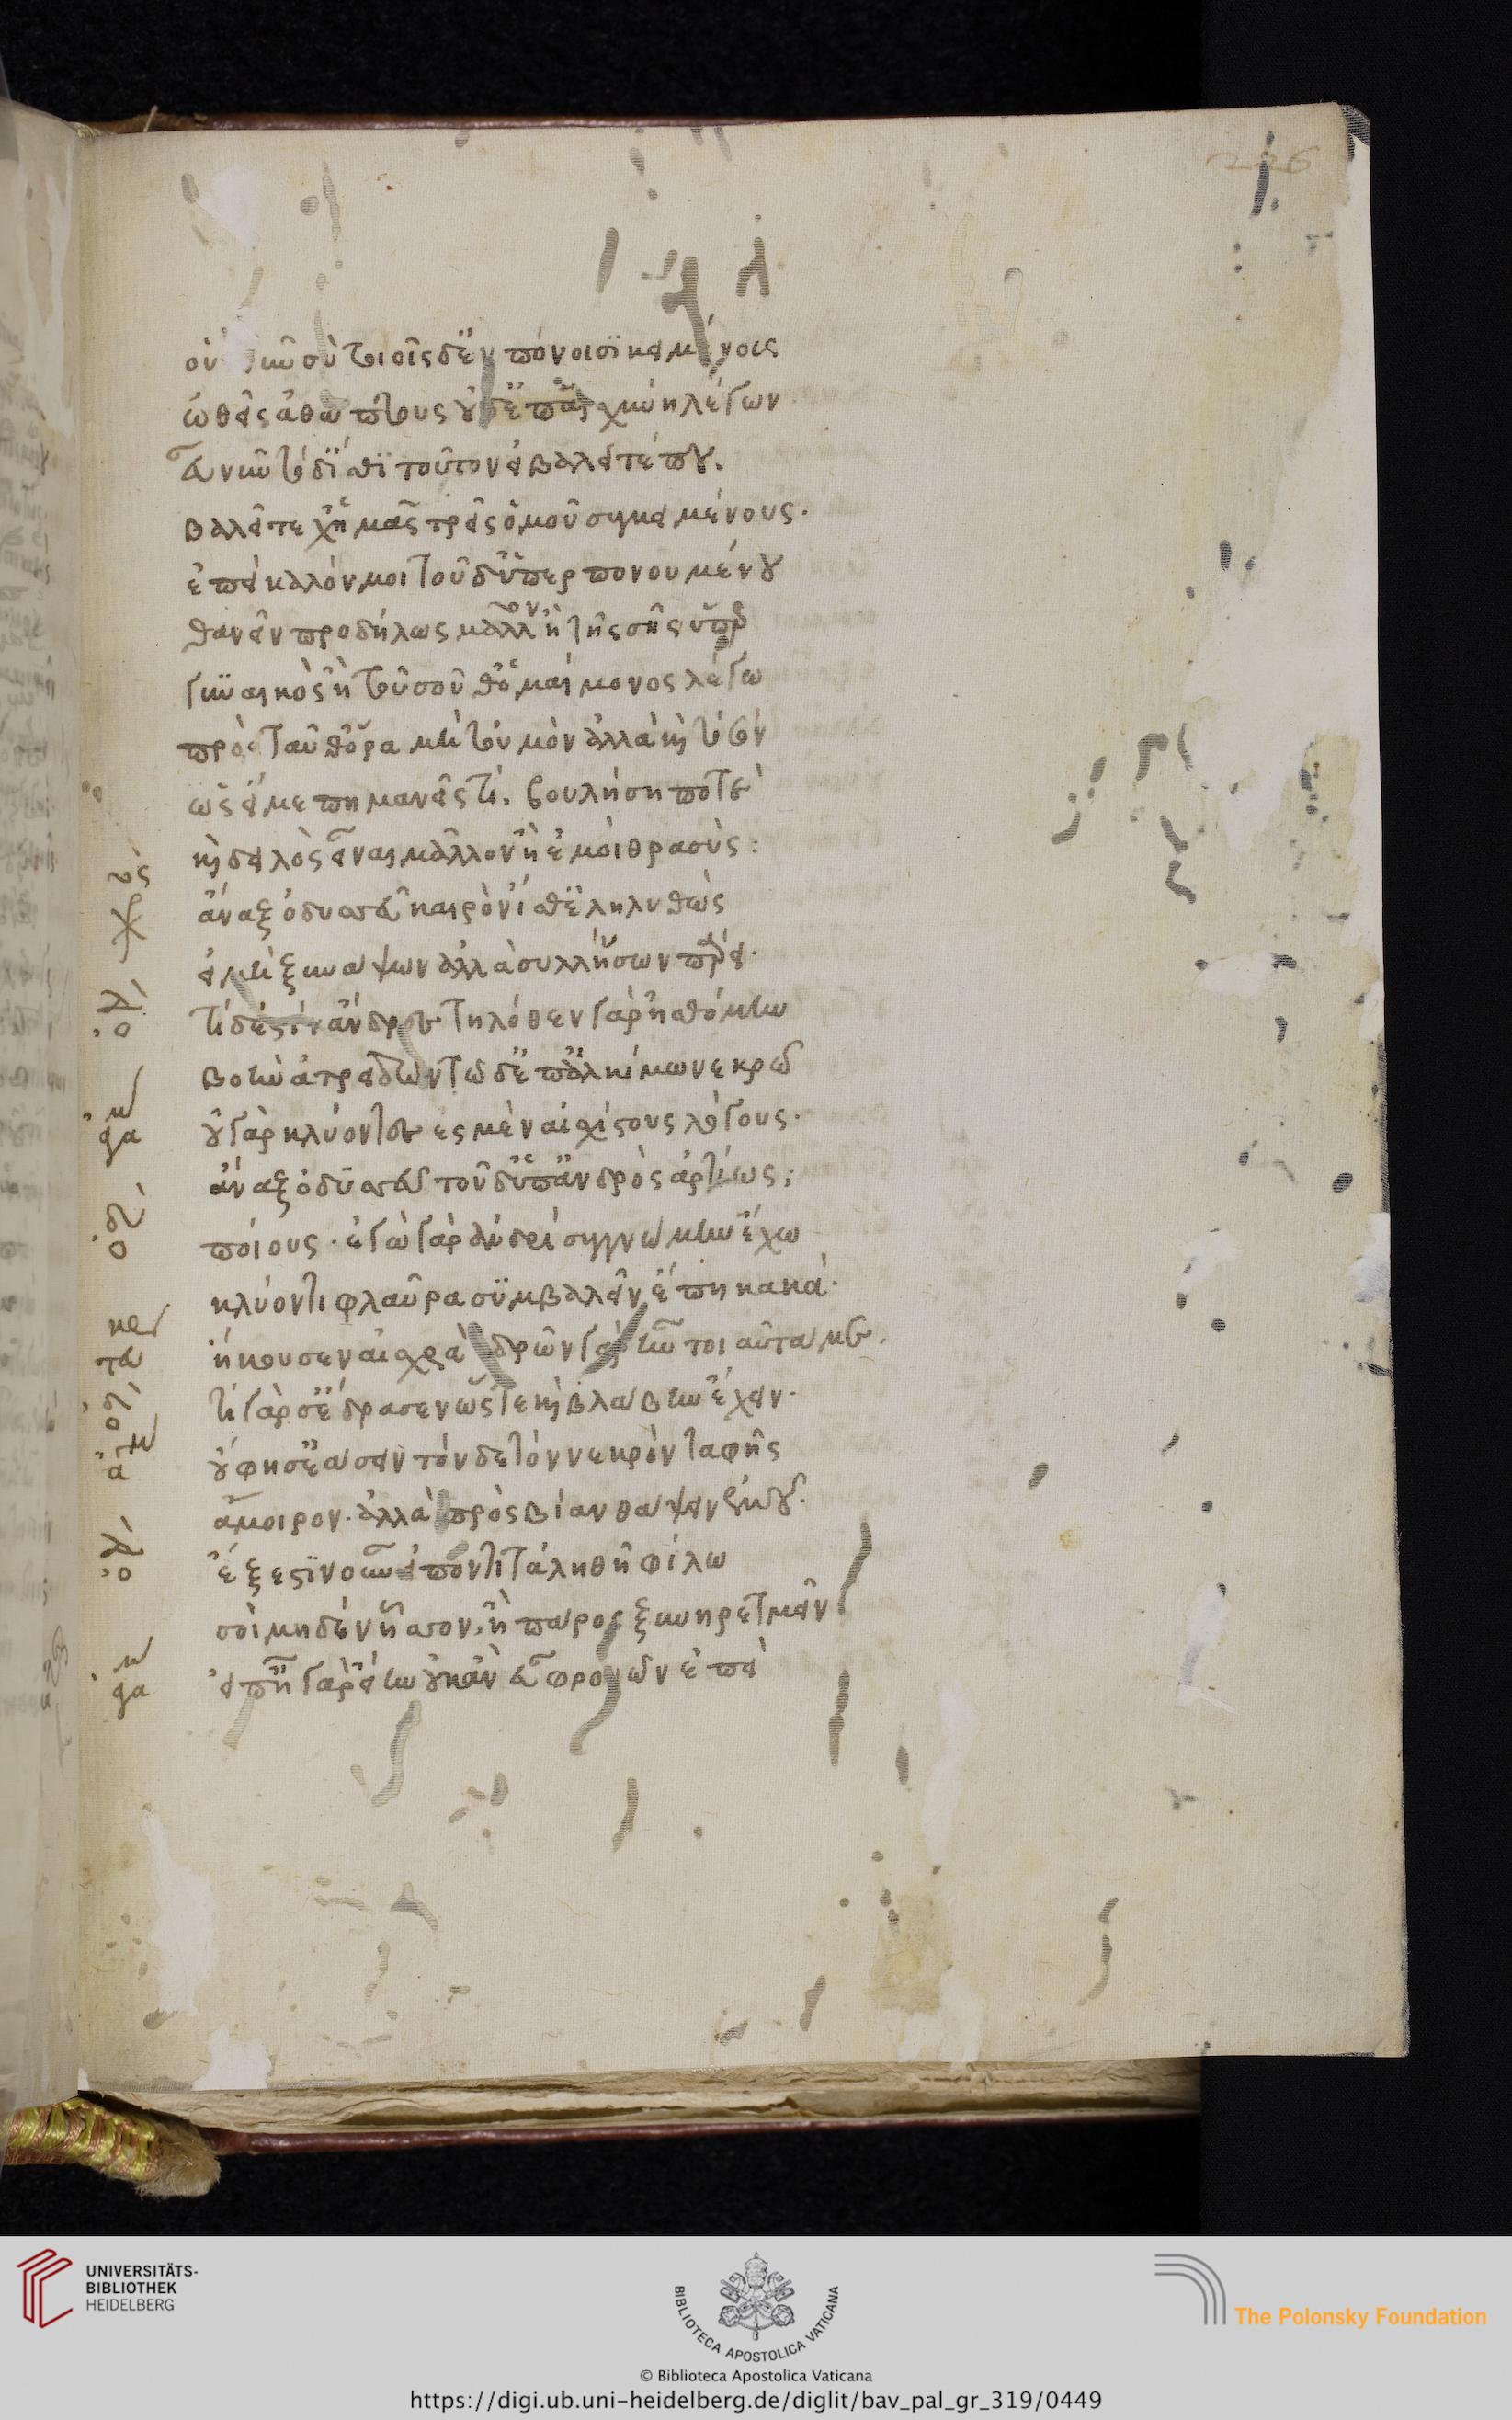 οὓ νῦν σὺ τοιοῖσδ' ἐν πόνοισι κειμένοις
ὠθεῖς ἀθάπτους οὐδ' ἐπαισχύνη λέγων
εὖ νῦν τόδ' ἴσθι τοῦτον εἰ βαλεῖτέ που.
βαλεῖτε χἠμᾶς τρεῖς ὁμοῦ συγκειμένους.
ἐπεὶ καλόν μοι τοῦδ' ὑπερπονουμένου
θανεῖν προδήλως μᾶλλον ἢ τῆς σῆς ὑπὲρ
γυναικὸς ἢ τοῦ σοῦ θ' ὁμαίμονος λέγω
πρὸς ταῦθ' ὅρα μὴ τοὐμὸν ἀλλὰ καὶ τὸ σόν
ὡς εἴ με πημανεῖς τί. βουλήση ποτὲ
καὶ δειλὸς εἶναι μᾶλλον ἢ ἐμοὶ θρασύς:
χορός ἄναξ ὀδυσσεῦ καιρὸν ἴσθ' ἐληλυθὼς
εἰ μὴ ξυνάψων ἀλλὰ συλλήσων πάρει.
ὀδ τί δ' ἔστιν ἄνδρες τηλόθεν γὰρ ἠσθόμην
βοὴν ἀτρειδῶν τῷδ' ἐπ' ἀλκίμω νεκρῶ
ἀγα οὐ γὰρ κλύοντες ἐσμὲν αἰσχίστους λόγους.
ἄναξ ὀδυσσεῦ τοῦδ' ὑπ' ἀνδρὸς ἀρτίως;
ὀδ ποίους. ἐγὼ γὰρ ἀνδρὶ συγγνώμην ἔχω
κλύοντι φλαῦρα συμβαλεῖν ἔπη κακά.
ἤκουσεν αἰσχρὰ δρῶν γὰρ ἦν τοιαῦτά με.
ὀδ τί γὰρ σ' ἔδρασεν ὥστε καὶ βλάβην ἔχειν.
οὔ φησ' ἐάσειν τόνδε τὸν νεκρὸν ταφῆς
ἄμοιρον. ἀλλὰ πρὸς βίαν θάψειν ἐμοῦ.
ὀδ ἔξεστιν οὖν εἰπόντι τἀληθῆ φίλω
σοὶ μηδὲν ἧσσον, ἢ πάρος ξυνηρετμεῖν
ἀγα εἴπ' ἦ γὰρ εἴην οὐκ ἂν εὖ φρονῶν ἐπεὶ
UNIVERSITÄTS-
BIBLIOTHEK
HEIDELBERG
BIBLIOTECA APOSTOLICA VATICANA
© Biblioteca Apostolica Vaticana
The Polonsky Foundation
https://digi.ub.uni-heidelberg.de/diglit/bav_pal_gr_319/0449